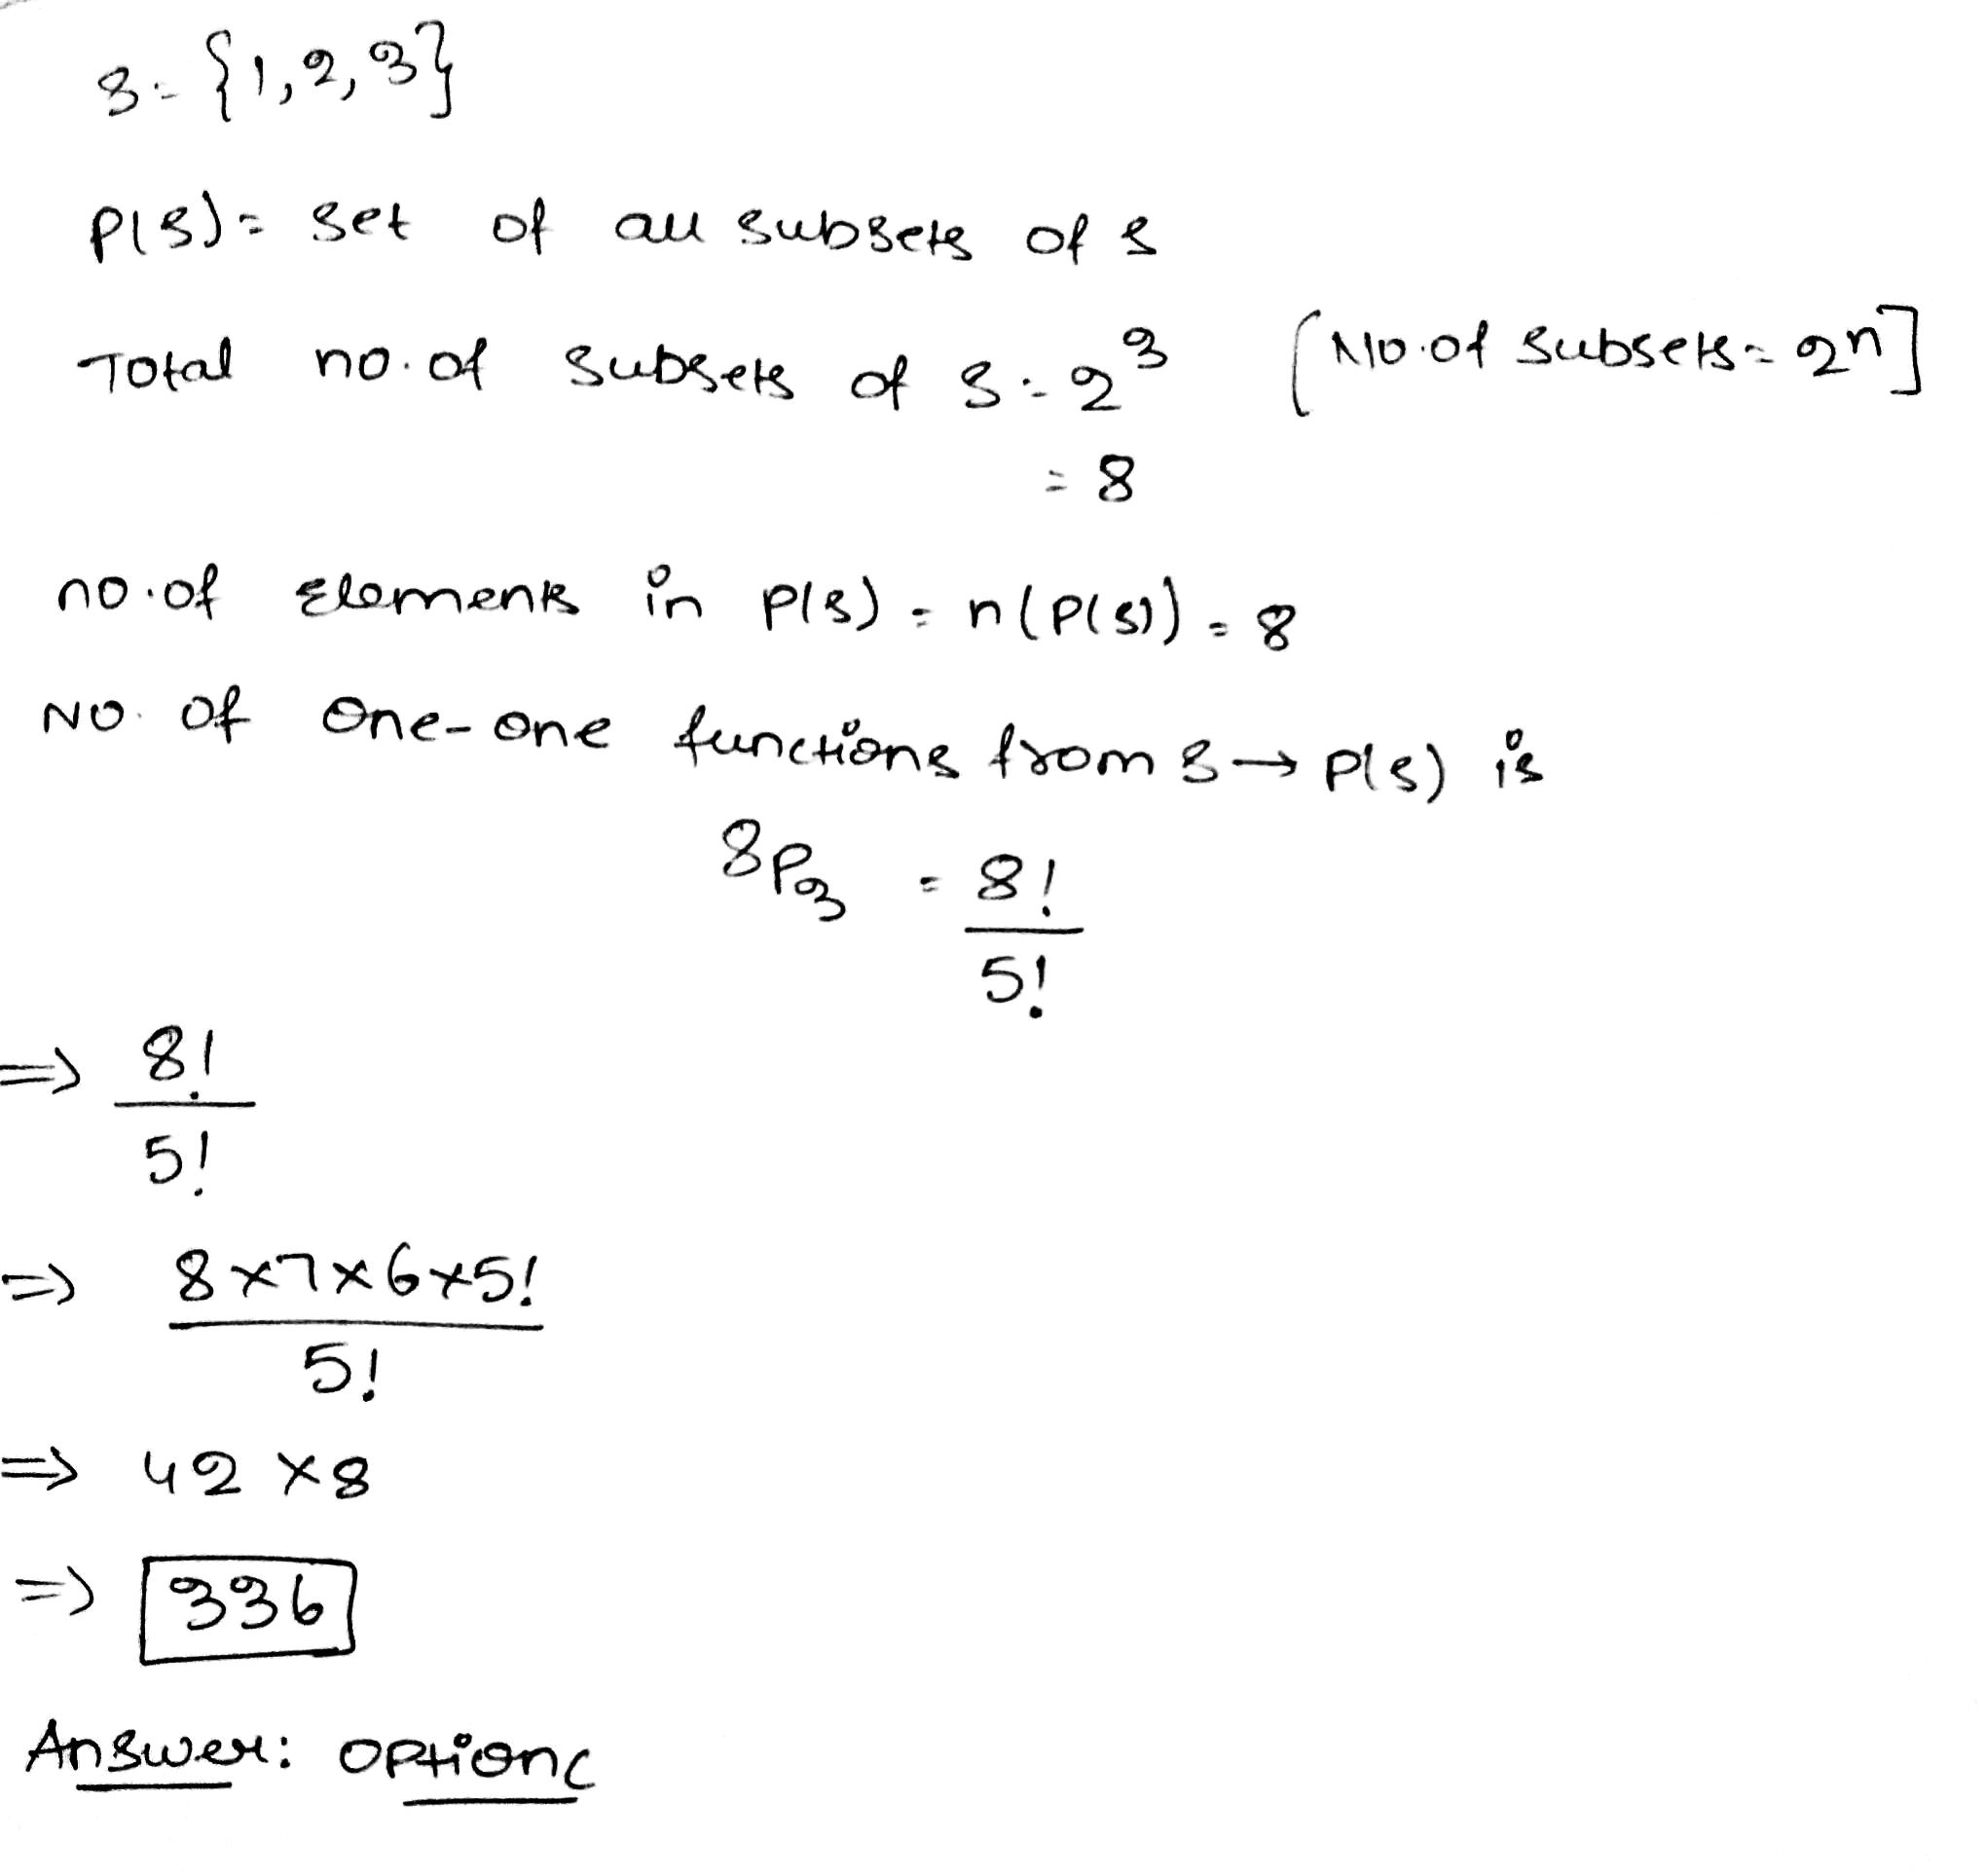 S = {1,2,3}
P(S) = Set of all subsets of S
Total no. of subsets of S = 2³ [No. of subsets = 2ⁿ]
= 8
no. of Elements in P(S) = n(P(S)) = 8
No. of One-One functions from S → P(S) is
8P₃ = 8!
5!
⇒ 8!
5!
⇒ 8×7×6×5!
5!
⇒ 42 × 8
⇒ 336
Answer: Option C